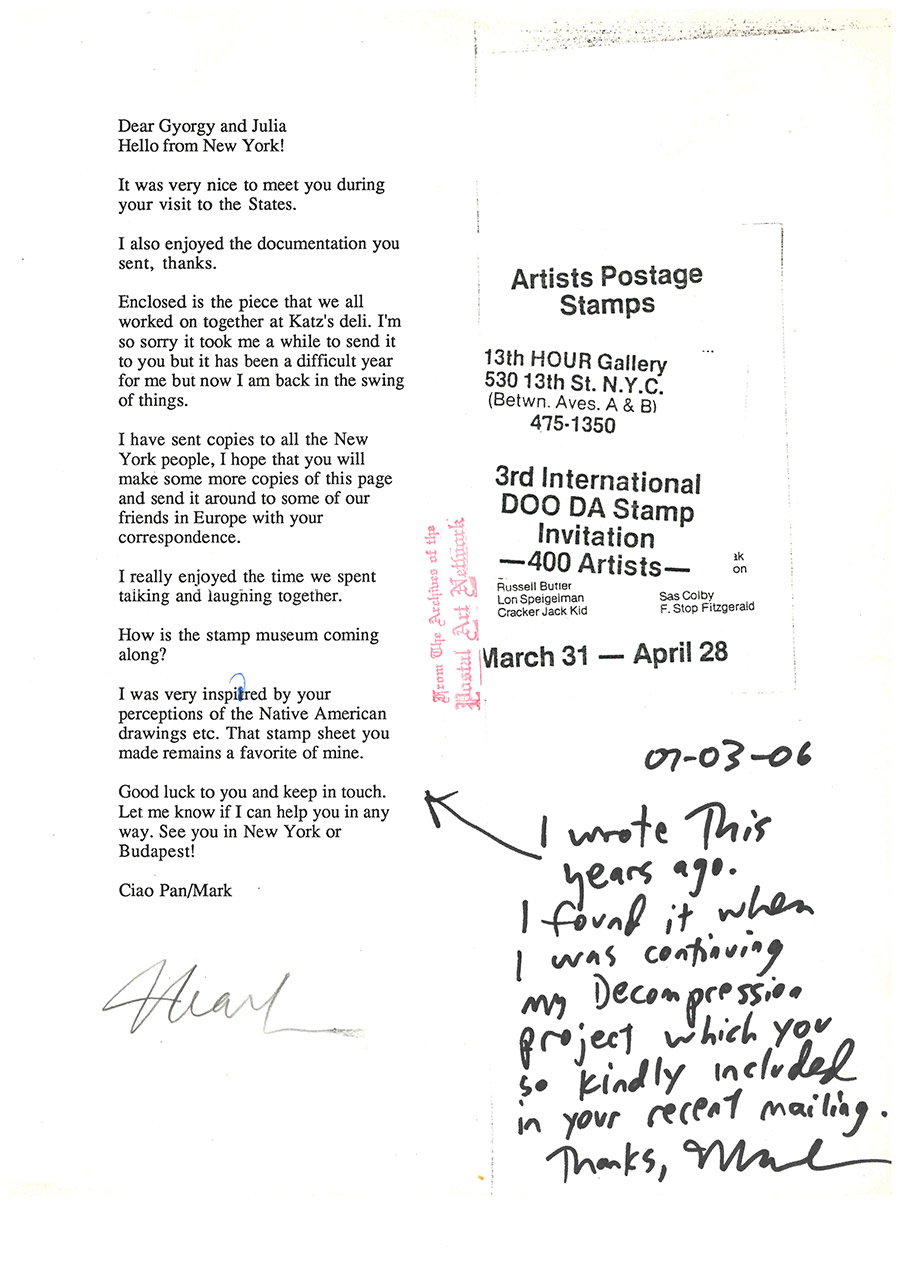 Dear Gyorgy and Julia
Hello from New York!
It was very nice to meet you during
your visit to the States.
I also enjoyed the documentation you
sent, thanks.
Enclosed is the piece that we all
worked on together at Katz's deli. I'm
so sorry it took me a while to send it
to you but it has been a difficult year
for me but now I am back in the swing
of things.
I have sent copies to all the New
York people, I hope that you will
make some more copies of this page
and send it around to some of our
friends in Europe with your
correspondence.
I really enjoyed the time we spent
talking and laughing together.
How is the stamp museum coming
along?
I was very inspired by your
perceptions of the Native American
drawings etc. That stamp sheet you
made remains a favorite of mine.
Good luck to you and keep in touch.
Let me know if I can help you in any
way. See you in New York or
Budapest!
Ciao Pan/Mark
Mark
From The Archives of the
Postal Art Network
Artists Postage
Stamps
13th HOUR Gallery
530 13th St. N.Y.C.
(Betwn. Aves. A & B)
475-1350
3rd International
DOO DA Stamp
Invitation
—400 Artists—
ak
on
Russell Butler
Lon Speigelman
Cracker Jack Kid
Sas Colby
F. Stop Fitzgerald
March 31 — April 28
07-03-06
I wrote This
years ago.
I found it when
I was continuing
my Decompression
project which you
so kindly included
in your recent mailing.
Thanks, Mark